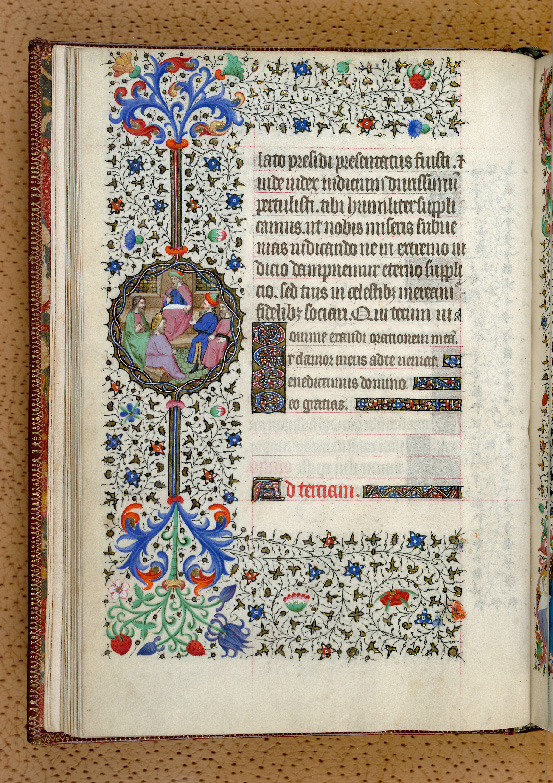 lato presidi presentatus fuisti. ⁊
iude iudex iudicium diuissimū
pertulisti. tibi humiliter suppli
camus. ut nobis miseris subue
nias iudicando ne in extremo iu
dicio dampnemur eterno suppli
cio. sed tuis in celestibȝ mereami
fidelibȝ sociari. Qui tecum uī. ⁊
Domine exaudi orationem meā.
Et clamor meus ad te veniat.
Benedicamus domino.
Deo gratias.
Ad terciam.